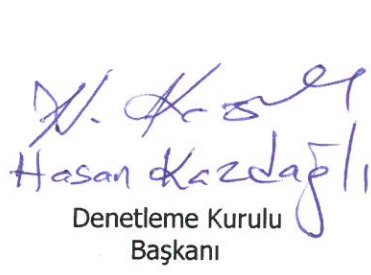 H. Kaz
Hasan Kazdağlı
Denetleme Kurulu
Başkanı